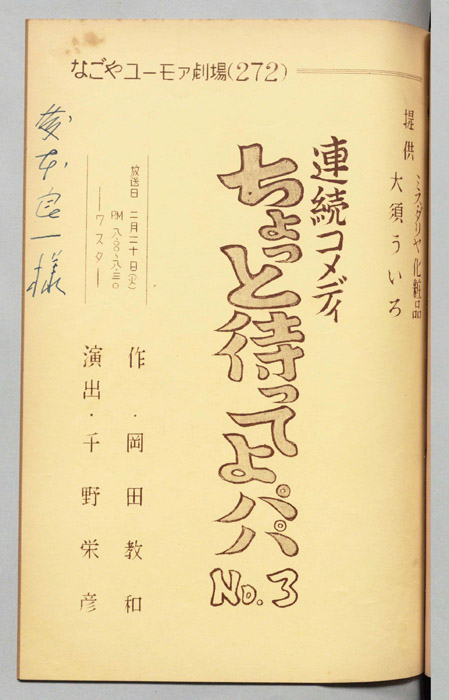 なごやユーモア劇場(272)
提供 ミス・ダリヤ化粧品
大須ういろ
連続コメディ
ちょっと待ってよパパ
No.3
作・岡田教和
演出・千野栄彦
放送日 二月二十日(火)
PM 八:〇〇~八:三〇
―ワスター―
本良一様